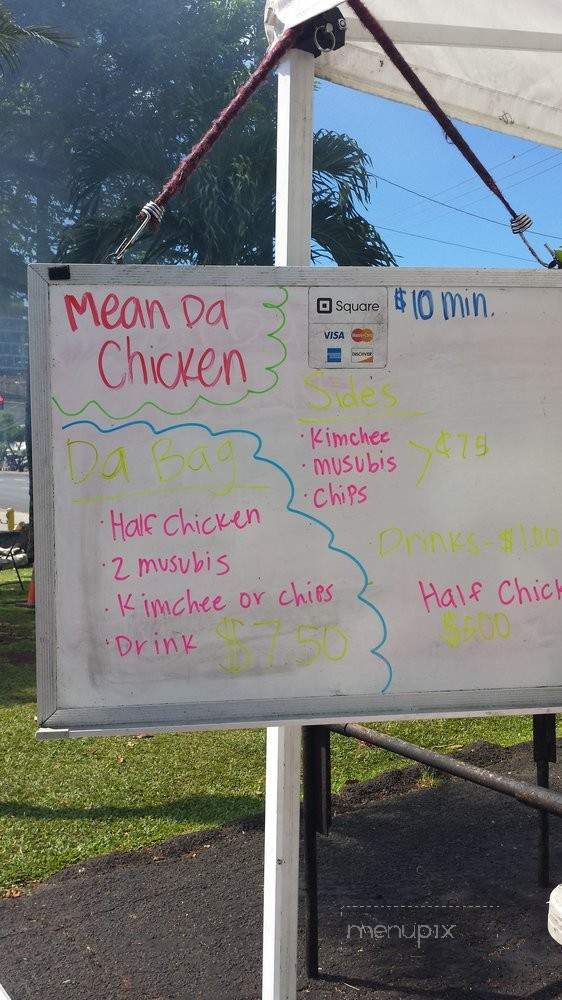 Mean Da
Chicken
Square
VISA
MasterCard
DISCOVER
$10 min.
Da Bag
· Half Chicken
· 2 musubis
· Kimchee or chips
· Drink $7.50
Sides
· Kimchee
· musubis
· Chips
¢75
· Drinks - $1.00
Half Chick
menupix